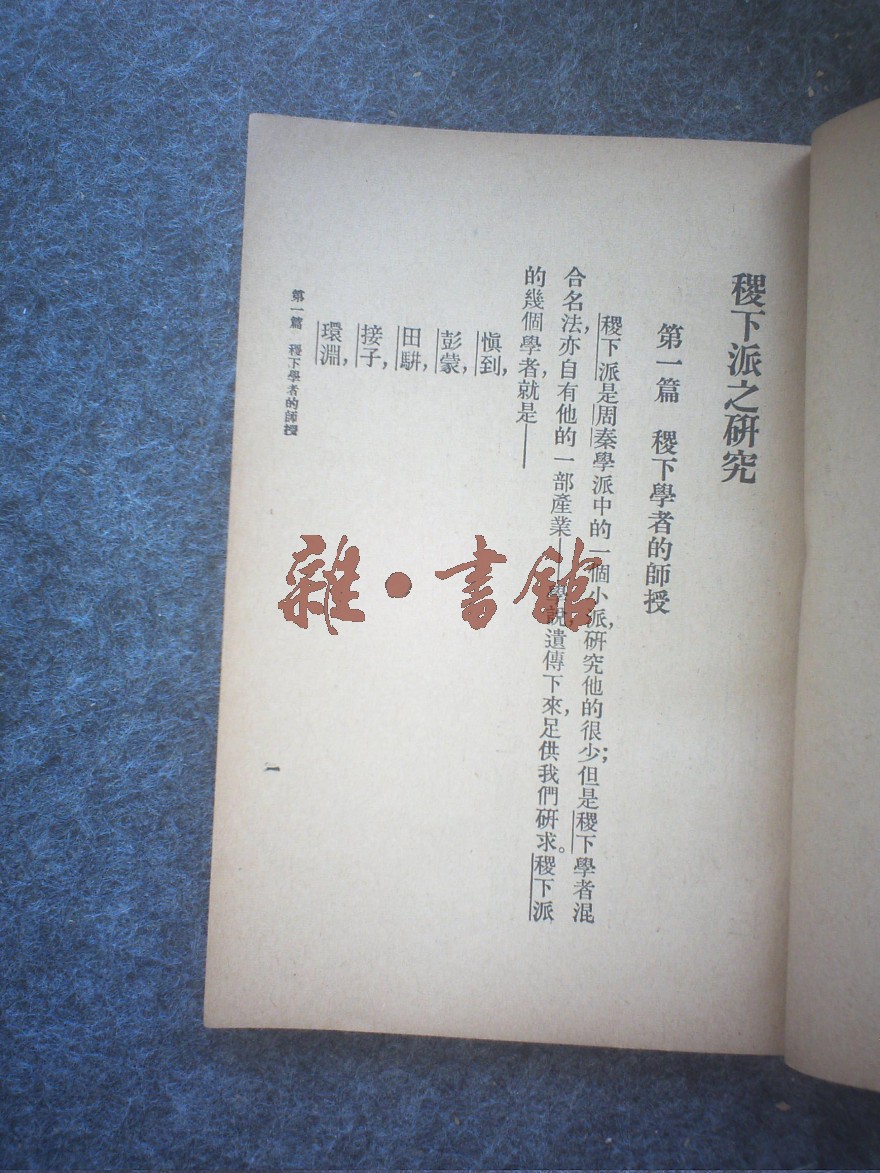 稷下派之研究
第一篇　稷下學者的師授
稷下派是周秦學派中的一個小派，研究他的很少；但是稷下學者混
合名法，亦自有他的一部產業——學說，遺傳下來，足供我們研求。稷下派
的幾個學者，就是——
慎到，
彭蒙，
田駢，
接子，
環淵，
第一篇　稷下學者的師授
一
雜·書館